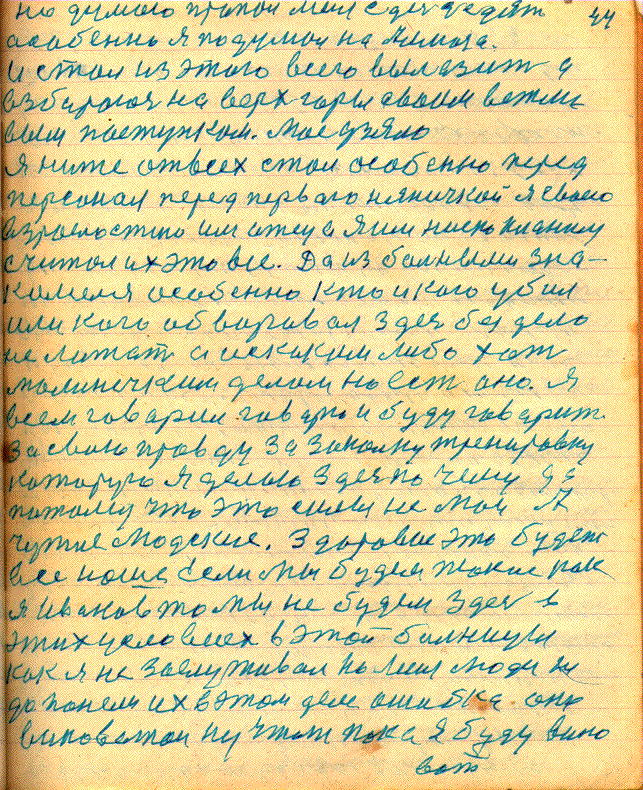 44
но думаю
особенно я подумал на
и стал из этого всего вылазит а
взбаратся на верх горы своим вежли
вым поступком. Мое дзяло
я ниже отвсех стал особенно перед
персонал перед первого няничкой я своею
взрослостию им отец а я им низко кланяюсь
считал их это все. Да из больными зна-
комился особенно кто и кого убил
или кого обворовал здесь без дело
не лижат а искаким либо хот
малинечким делом но ест оно. Я
всем говарил говарю и буду говарит
за свою правду за закалку тренировку
которую я делаю здес по чему да
потому что это силы не мои А
чужие людские. Здоровие это будет
все наше если мы будем такие как
я Иванов то мы не будем здес в
этих условиех в этой болницы
как я не заслуживал но меня люди не
до поняли их в этом деле ошибка они
виноватаи ну что ж пока я буду вино
ват